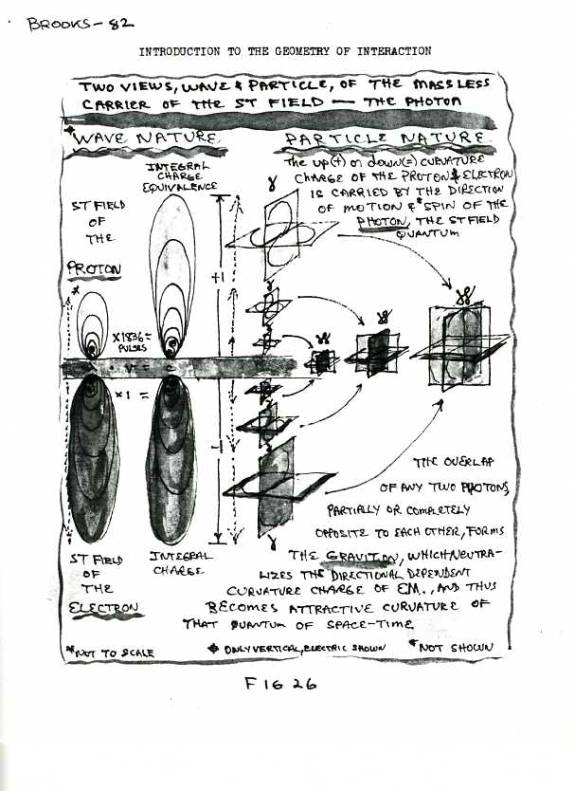 BROOKS-82
INTRODUCTION TO THE GEOMETRY OF INTERACTION
TWO VIEWS, WAVE & PARTICLE, OF THE MASSLESS
CARRIER OF THE ST FIELD — THE PHOTON
WAVE NATURE
PARTICLE NATURE
INTEGRAL
CHARGE
EQUIVALENCE
ST FIELD
OF
THE
PROTON
THE UP(+) OR DOWN(-) CURVATURE
CHARGE OF THE PROTON & ELECTRON
IS CARRIED BY THE DIRECTION
OF MOTION & *SPIN OF THE
PHOTON, THE ST FIELD
QUANTUM
γ
+1
*
X1836 =
PULSES
X1 =
-1
γ
THE OVERLAP
OF ANY TWO PHOTONS,
PARTIALLY OR COMPLETELY
OPPOSITE TO EACH OTHER, FORMS
THE GRAVITON, WHICH NEUTRA-
LIZES THE DIRECTIONAL DEPENDENT
CURVATURE CHARGE OF EM., AND THUS
BECOMES ATTRACTIVE CURVATURE OF
THAT QUANTUM OF SPACE-TIME.
ST FIELD
OF
THE
ELECTRON
INTEGRAL
CHARGE
*NOT TO SCALE
ONLY VERTICAL, ELECTRIC SHOWN
*NOT SHOWN
FIG 26